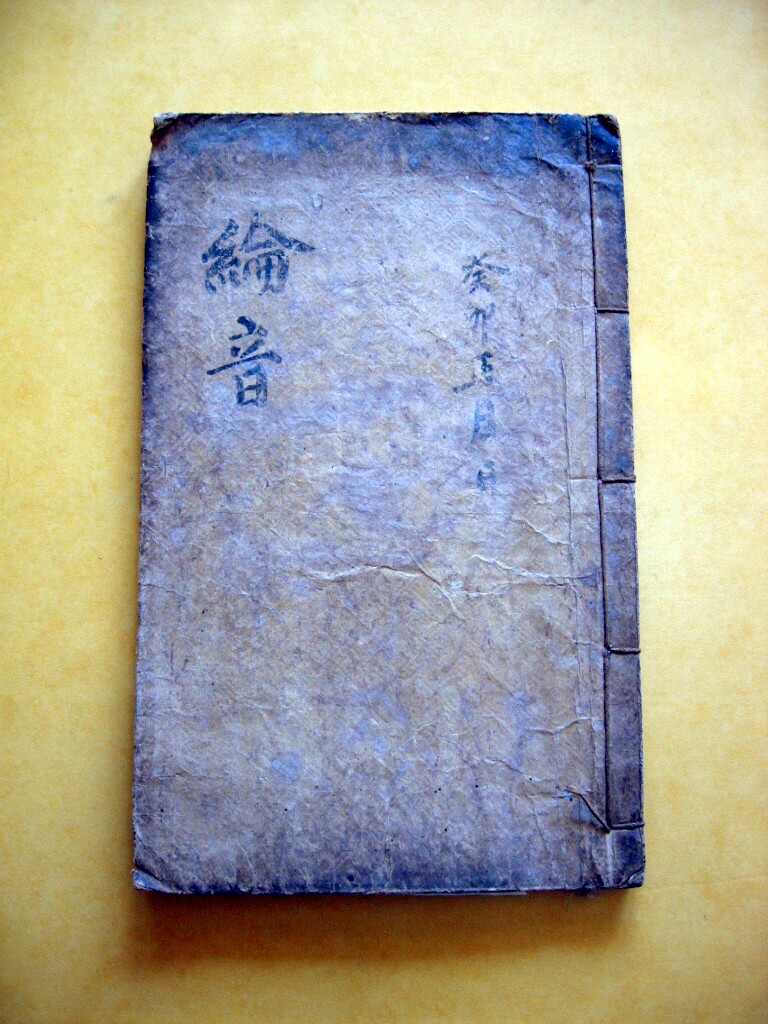 癸卯五月日
綸音